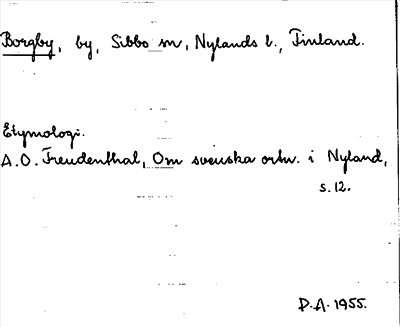 Borgby, by, Sibbo sn, Nylands l., Finland.
Etymologi.
A.O. Freudenthal, Om svenska ortn. i Nyland,
s. 12.
D.A. 1955.